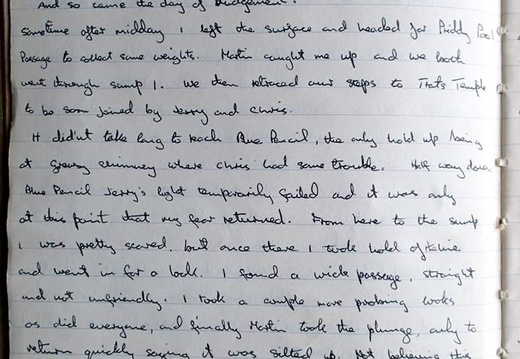 And so came the day of Judgement.
sometime after midday I left the surface and headed for Priddy Pool
Passage to collect some weights. Martin caught me up and we both
went through sump 1. We then retraced our steps to Trats Temple
to be soon joined by Jerry and Chris.
It didn't take long to reach Blue Pencil, the only hold up being
at greasy chimney where Chris had some trouble. Half way down
Blue Pencil Jerry's light temporarily failed and it was only
at this point that my fear returned. From here to the sump
I was pretty scared, but once there I took hold of the line
and went in for a look. I found a wide passage, straight
and not unfriendly. I took a couple more probing looks
as did everyone, and finally Martin took the plunge, only to
return quickly saying it was silted up. Not believing this